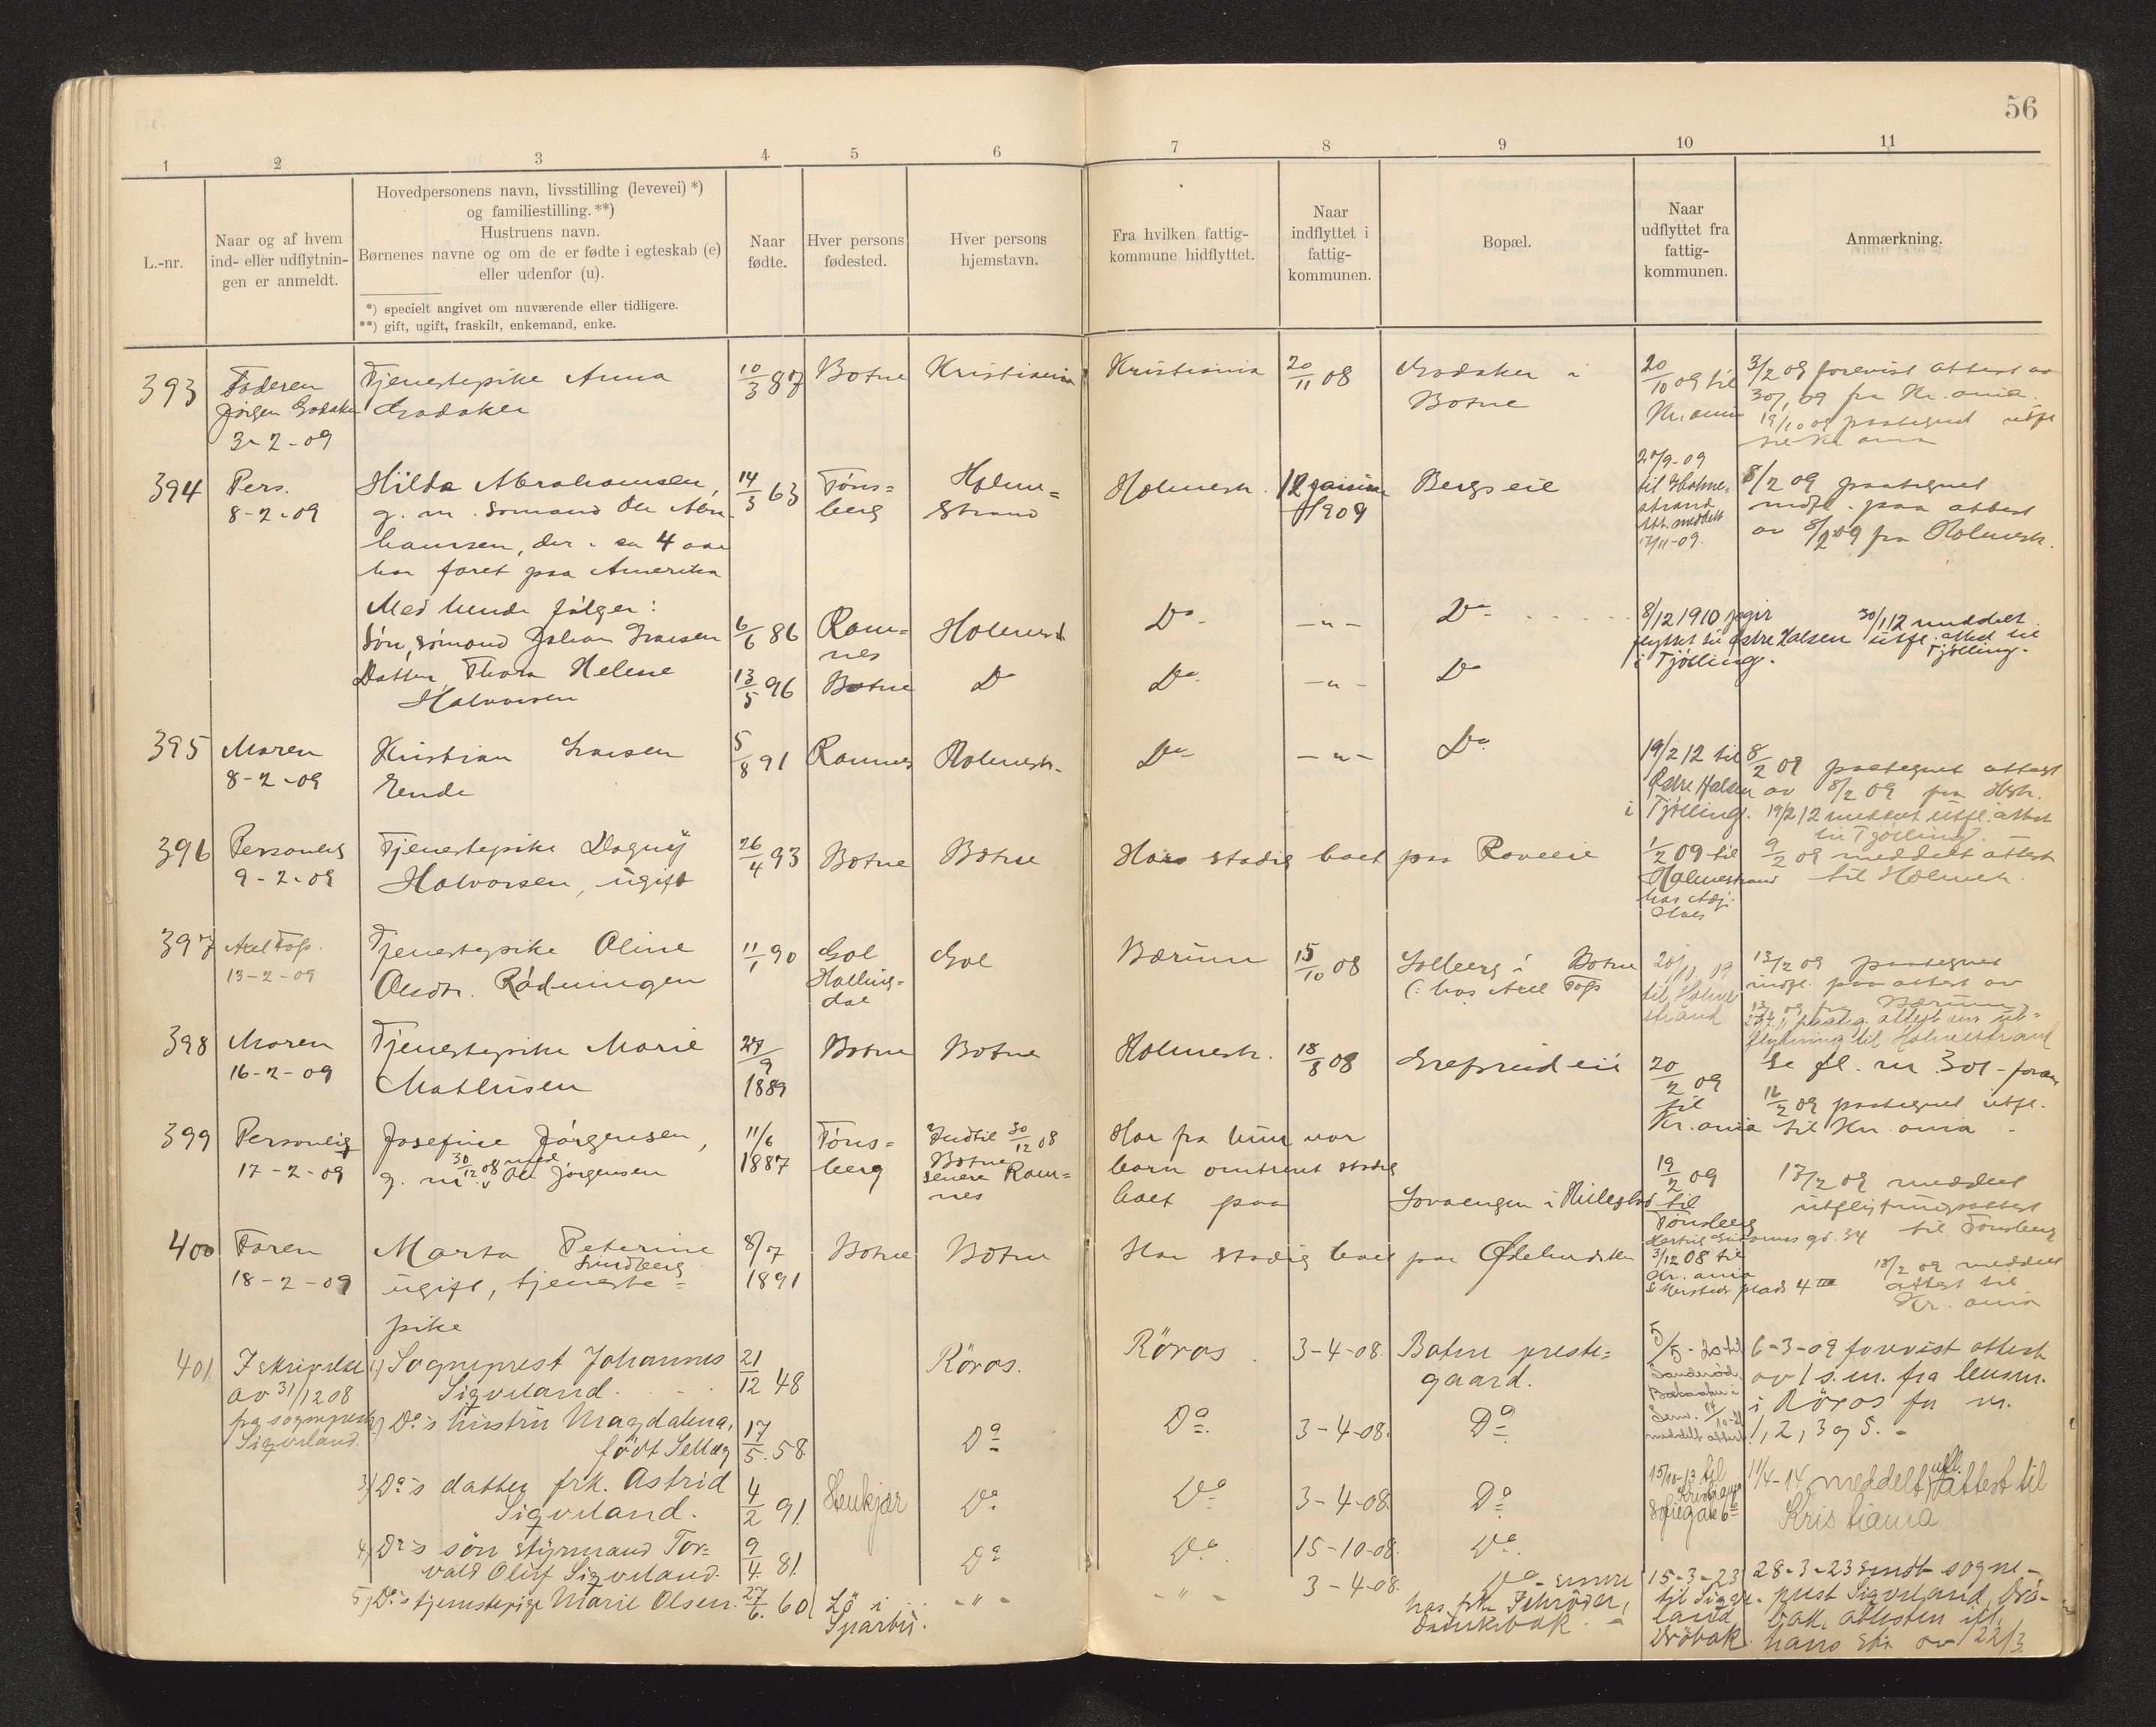 56
1 2 3 4 5 6 7 8 9 10 11
L.-nr.
Naar og af hvem
ind- eller udflytnin-
gen er anmeldt.
Hovedpersonens navn, livsstilling (levevei) *)
og familiestilling. **)
Hustruens navn.
Børnenes navne og om de er fødte i egteskab (e)
eller udenfor (u).
*) specielt angivet om nuværende eller tidligere.
**) gift, ugift, fraskilt, enkemand, enke.
Naar
fødte.
Hver persons
fødested.
Hver persons
hjemstavn.
Fra hvilken fattig-
kommune hidflyttet.
Naar
indflyttet i
fattig-
kommunen.
Bopæl.
Naar
udflyttet fra
fattig-
kommunen.
Anmærkning.
393 Faderen Tjenestepike Anna 10/3 87 Botne Kristiania Kristiania 20/11 08 Godaker i 20/10 09 til 3/2 09 forevist attest av
Jørgen Godaker Godaker Botne Kr.ania 30/1 09 fra Kr.ania.
3-2-09 19/10 09 paategnet utfl
til Kr ania
394 Pers. Hilda Abrahamsen, 14/3 63 Tøns= Holme= Holmestr. 12 januar Bergseie 27/9-09 8/2 09 paategnet
8-2-09 g. m. sømand Ole Abra berg strand 1909 til Holme= indfl. paa attest
hamsen, der i ca 4 aar strand av 8/2 09 fra Holmestr.
har faret paa Amerika Att. meddelt
17/11-09.
Med hende følger:
Søn, sømand Johan Larsen 6/6 86 Ram= Holmestr Do -"- Do 8/12 1910 flyttet til Østre Halsen 30/1 12 meddelt
nes i Tjølling. utfl. attest til Tjølling.
Datter Thora Helene 13/5 96 Botne Do Do -"- Do
Halvorsen
395 Moren Kristian Larsen 5/8 91 Ramnes Holmestr. Do -"- Do 19/2 12 til 8/2 09 paategnet attest
8-2-09 Eende Østre Halsen av 8/2 09 fra Hstr.
i Tjølling. 19/2 12 meddelt utfl. attest
til Tjølling.
396 Personlig Tjenestepike Dagny 26/4 93 Botne Botne Har stadig boet paa Raveeie 1/2 09 til 9/2 09 meddelt attest
9-2-09 Halvorsen, ugift Holmestrand til Holmestr.
hos
397 Axel Fos. Tjenestepike Oline 11/1 90 Gol Gol Bærum 15/10 08 Solberg i Botne 20/11 09 13/2 09 paategnet
13-2-09 Olsdtr. Rødningen Halling= (: hos Axel Fos til Holme indfl. paa attest av
dal strand fra Bærum
paateg. attest om ut=
flytning til Holmestrand
398 Moren Tjenestepike Marie 27/9 Botne Botne Holmestr. 18/8 08 Grefsrud eie 20/2 09 Se fl. nr 301 - foran
16-2-09 Mathisen 1889 til 16/2 09 paategnet utfl.
Kr.ania til Kr.ania.
399 Personlig Josefine Jørgensen, 11/6 Tøns= Indtil 30/12 08 Har fra hun var
17-2-09 g. m. 30/12 08 med Ole Jørgensen 1887 berg Botne barn omtrent stadig 19/2 09 17/2 09 meddelt
senere Ram= boet paa Lovaengen i Hillestad til utflytningsattest
nes Tønsberg til Tønsberg
gd. 34
400 Faren Marta Peterine 8/7 Botne Botne Har stadig boet paa 3/12 08 til 18/2 09 meddelt
18-2-09 Lundberg 1891 Kr.ania attest til
ugift, tjeneste= plads 4 III Kr. ania
pike
401 I skrivelse 1) Sogneprest Johannes 21/12 48 Røros. Røros. 3-4-08. Botne preste= 5/5-20 til 6-3-09 forevist attest
av 31/12 08 Sigveland. gaard. av 1 s.m. fra lensm.
fra sogneprest i Røros for nr.
Sigveland. 2) Do's hustru Magdalena, 17/5 58 Do Do 3-4-08. Do meddelt attest 1, 2, 3 og 5. -
født Selleg
3) Do's datter frk. Astrid 4/2 91 Stenkjær Do Do 3-4-08. Do 15/10-13 til 11/4-14 meddelt utfl. attest til
Sigveland. Kristiania Kristiania
Sofiegate 6
4) Do's søn styrmand Tor= 9/4 81 Do Do 15-10-08. Do
vald Oluf Sigveland.
5) Do's tjenestepige Marie Olsen. 27/6 60 Lø i -"- -"- 3-4-08. Do - senere 15-3-23 28-3-23 sendt sogne-
Sparbu. hos frk Schrøder, til Sigve- prest Sigveland, Drø-
land, bak, attesten ifl.
Drøbak. hans skr. av 22/3.